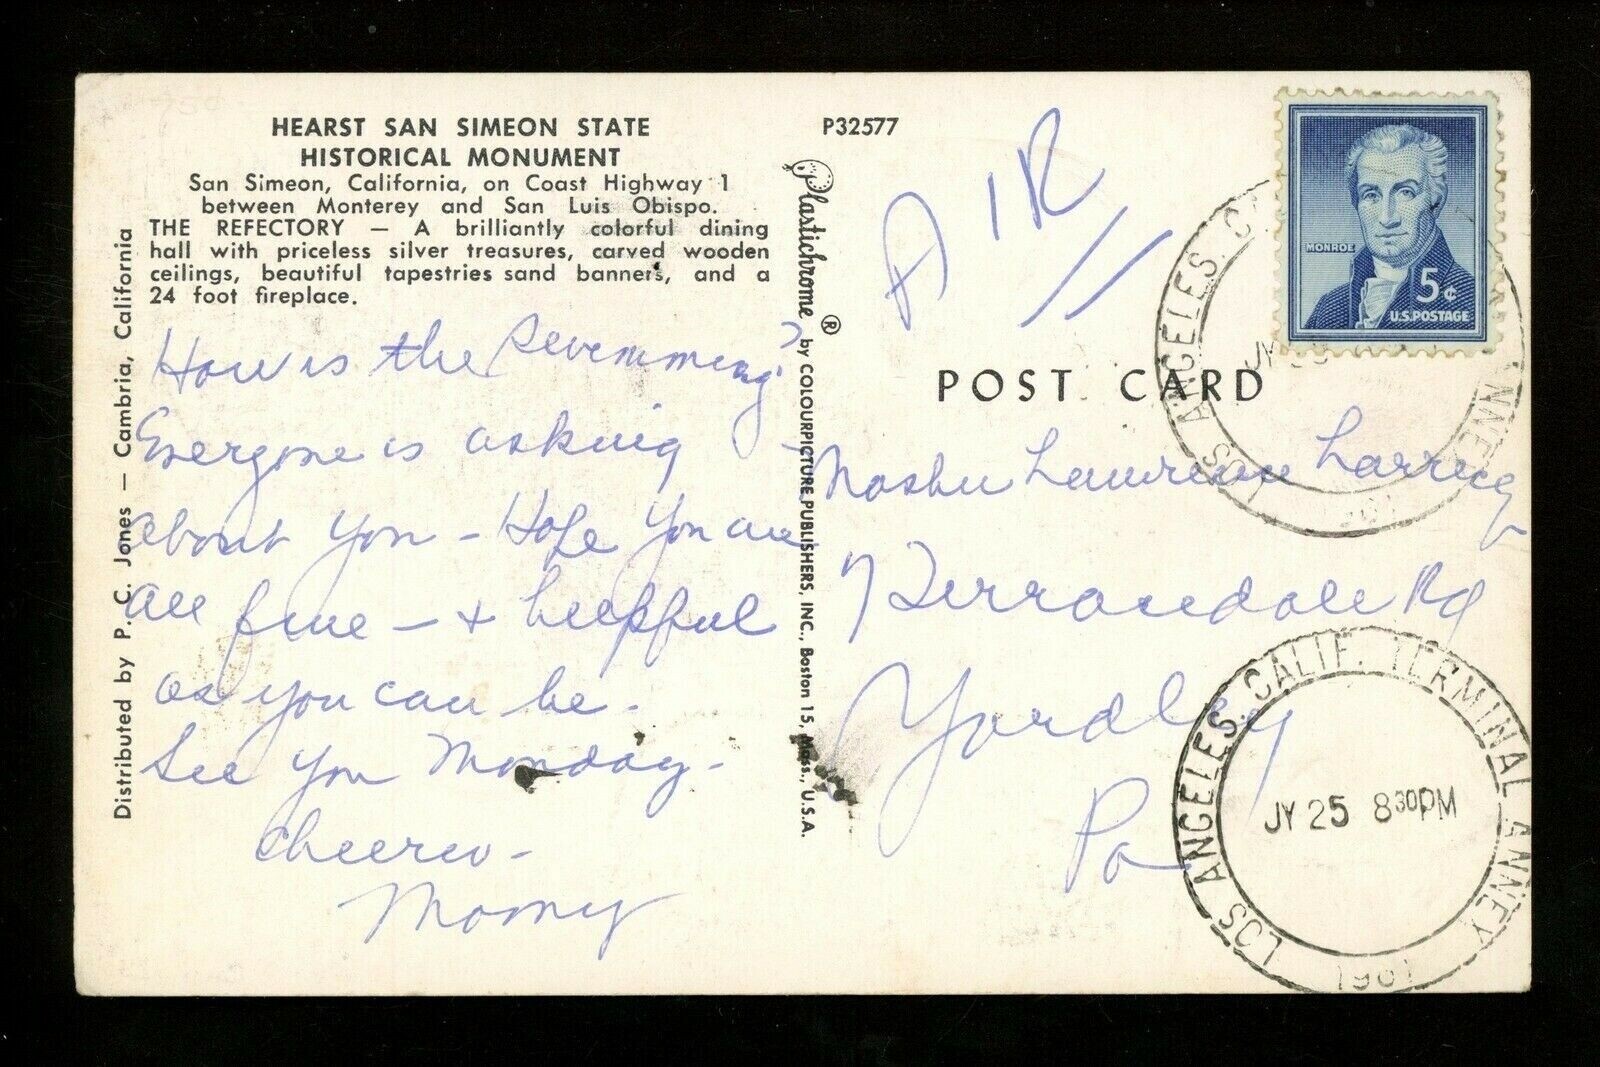 HEARST SAN SIMEON STATE
HISTORICAL MONUMENT
San Simeon, California, on Coast Highway 1
between Monterey and San Luis Obispo.
THE REFECTORY — A brilliantly colorful dining
hall with priceless silver treasures, carved wooden
ceilings, beautiful tapestries sand banners, and a
24 foot fireplace.
How is the swimming?
Everyone is asking
about you - Hope you are
all fine - & helpful
as you can be.
See you Monday -
Cheerio -
Momy
Distributed by P. C. Jones — Cambria, California
P32577
Plastichrome ® by COLOURPICTURE PUBLISHERS, INC., Boston 15, Mass., U.S.A.
AIR
POST CARD
MONROE
5¢
U.S.POSTAGE
Larney
7 Terracedale Rd
Yardley
Pa
LOS ANGELES, CALIF. TERMINAL ANNEX
JY 25 8 30PM
1961